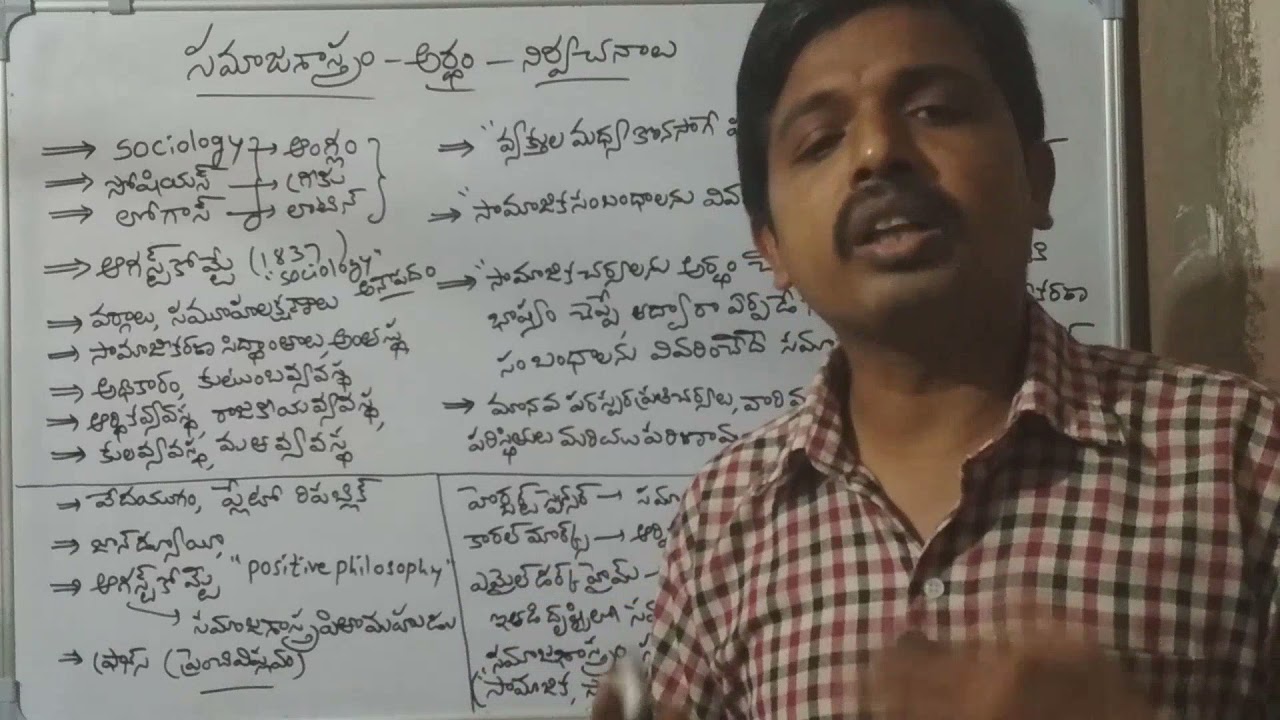 సమాజశాస్త్రం - అర్థం - నిర్వచనాలు
⇒ sociology → ఆంగ్లం
⇒ సోషియస్ → గ్రీకు
⇒ లోగాస్ → లాటిన్
⇒ ఆగస్ట్ కోమ్టే (1837) "sociology" అనుపదం
⇒ వర్గాలు, సమూహలక్షణాలు
⇒ సామాజికరణ సిద్ధాంతాలు, అంతస్థ
⇒ అధికారం, కుటుంబవ్యవస్థ
⇒ ఆర్థికవ్యవస్థ, రాజకీయవ్యవస్థ,
⇒ కులవ్యవస్థ, మతవ్యవస్థ
⇒ "వ్యక్తుల మధ్య కొనసాగే
⇒ "సామాజిక సంబంధాలను
⇒ "సామాజిక చర్యలను అర్థం
భాష్యం చెప్పే, తద్వారా ఏర్పడే
సంబంధాలను వివరించేదే
⇒ మానవ పరస్పర ప్రతిచర్యలు, వారి
పరిస్థితుల మరియు
→ వేదయుగం, ప్లేటో రిపబ్లిక్
⇒ జాన్ డ్యూయీ,
⇒ ఆగస్ట్ కోమ్టే "positive philosophy"
→ సమాజశాస్త్ర పితామహుడు
→ ఫ్రాన్స్ (ఫ్రెంచి విప్లవం)
హెర్బర్ట్ స్పెన్సర్ →
కారల్ మార్క్స్ →
ఎమైల్ డర్క్ హైమ్ -
ఇతడి దృష్టిలో
"సమాజశాస్త్రం
(సామాజిక,